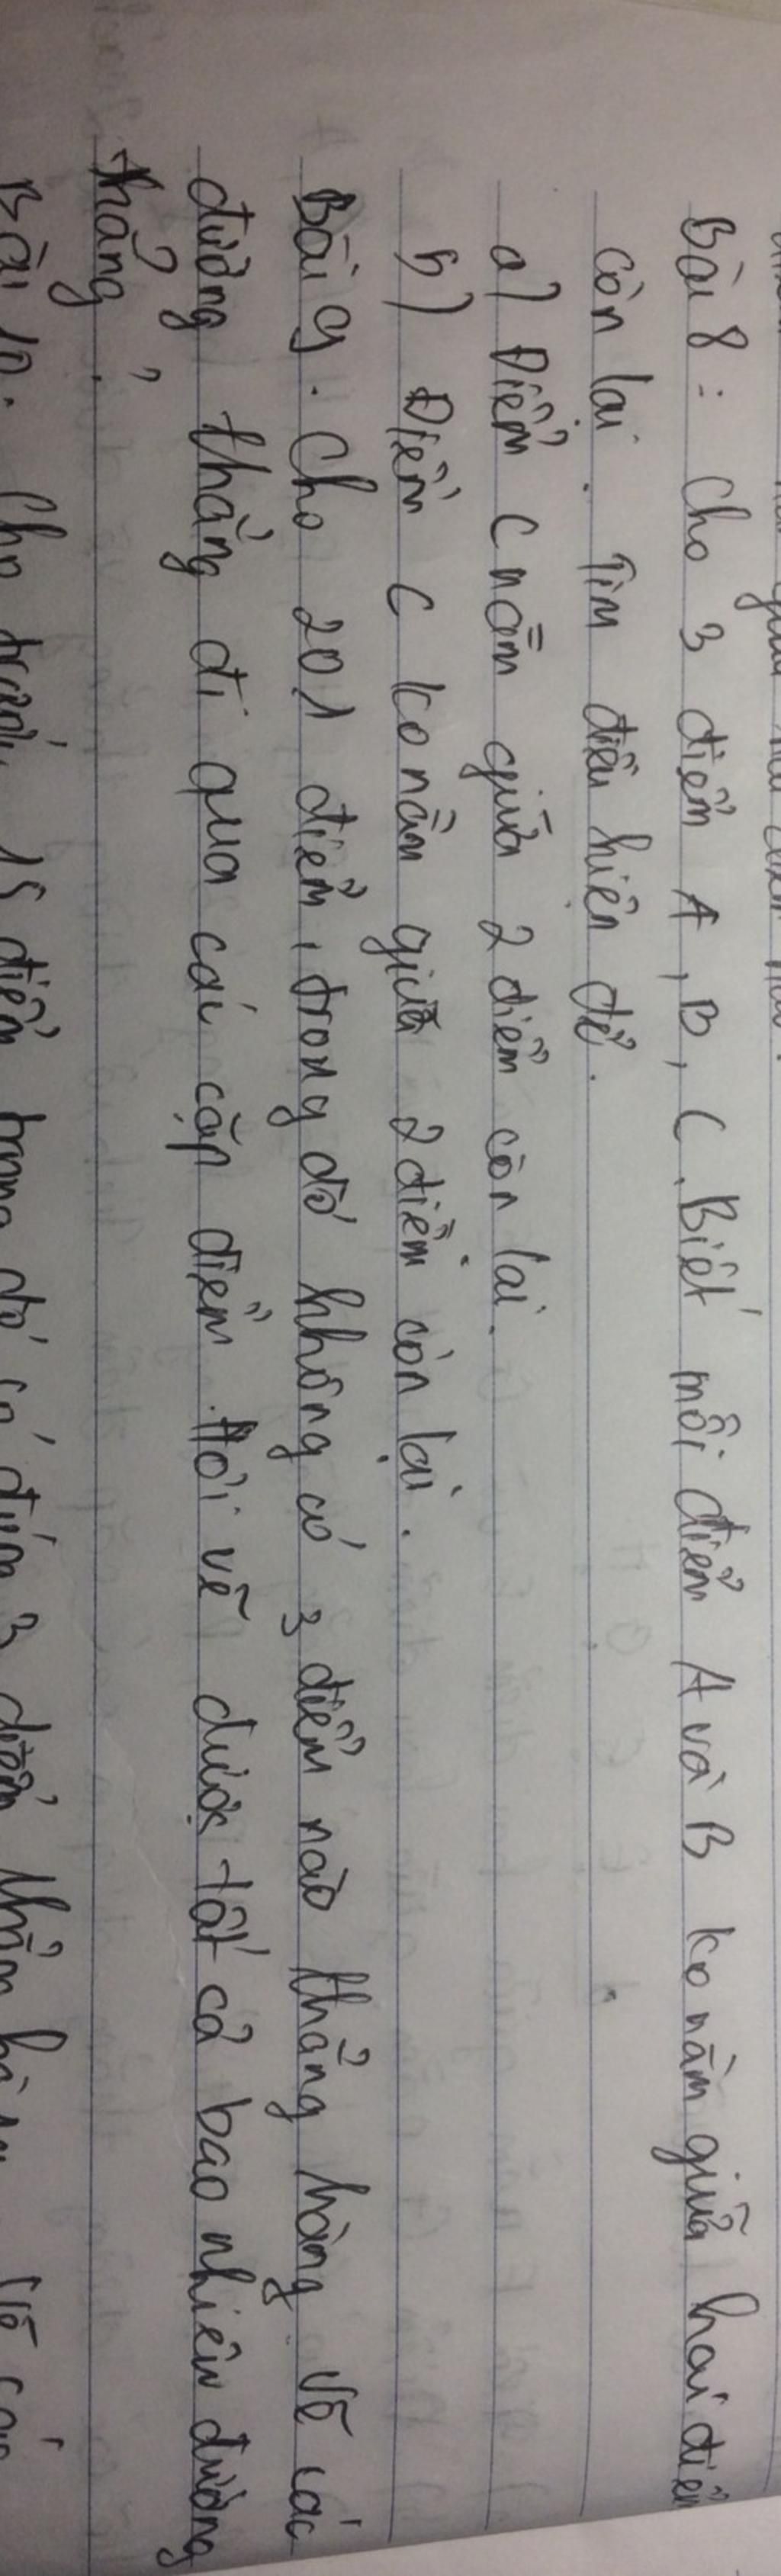 Bài 8: Cho 3 điểm A, B, C. Biết mỗi điểm A và B ko nằm giữa hai điểm
còn lại. Tìm điều kiện để.
a) Điểm C nằm giữa 2 điểm còn lại.
b) Điểm C ko nằm giữa 2 điểm còn lại.
Bài 9. Cho 201 điểm, trong đó không có 3 điểm nào thẳng hàng. Vẽ các
đường thẳng đi qua các cặp điểm. Hỏi vẽ được tất cả bao nhiêu đường
thẳng?
Bài 10. Cho trước 15 điểm trong đó có đúng 3 điểm thẳng hàng. Vẽ các